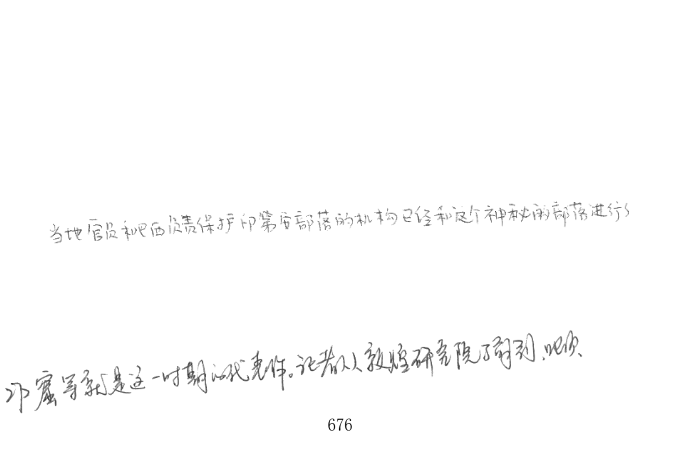 当地官员和巴西负责保护印第安部落的机构已经和这个神秘的部落进行
窟等就是这一时期的代表作。记者从敦煌研究院了解到,
676